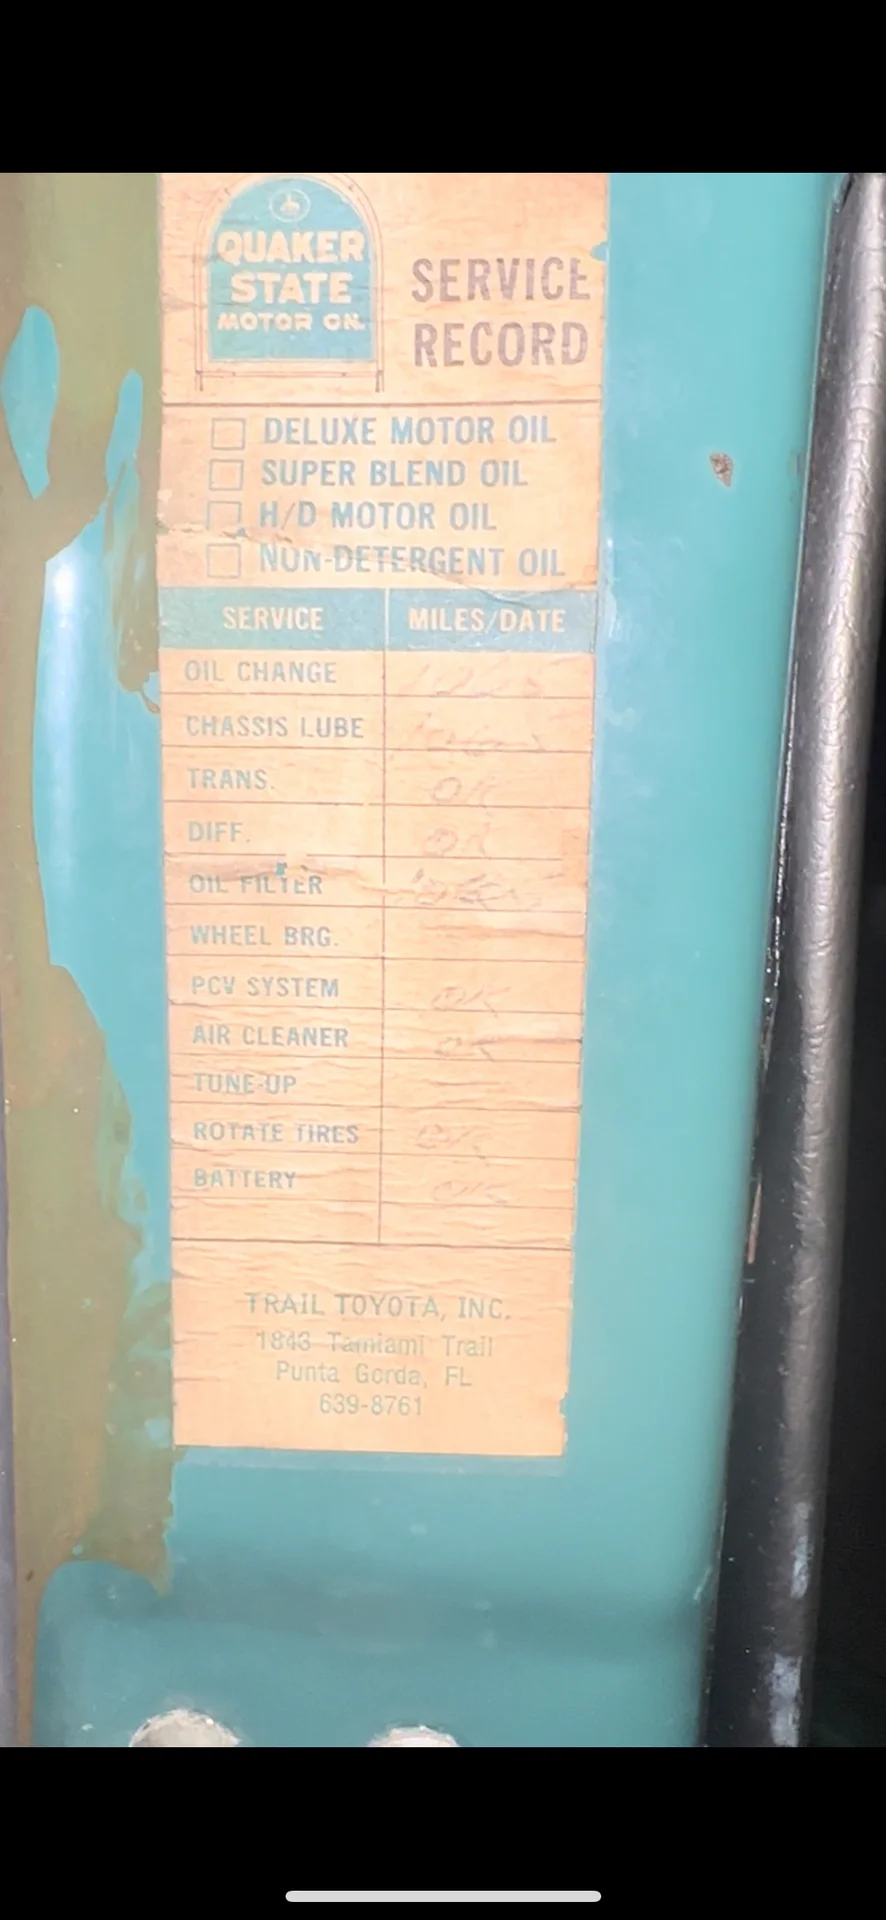 QUAKER
STATE
MOTOR OIL
SERVICE
RECORD
DELUXE MOTOR OIL
SUPER BLEND OIL
H/D MOTOR OIL
NON-DETERGENT OIL
SERVICE MILES/DATE
OIL CHANGE
CHASSIS LUBE
TRANS. OK
DIFF. OK
OIL FILTER
WHEEL BRG.
PCV SYSTEM OK
AIR CLEANER OK
TUNE-UP
ROTATE TIRES OK
BATTERY OK
TRAIL TOYOTA, INC.
1843 Tamiami Trail
Punta Gorda, FL
639-8761